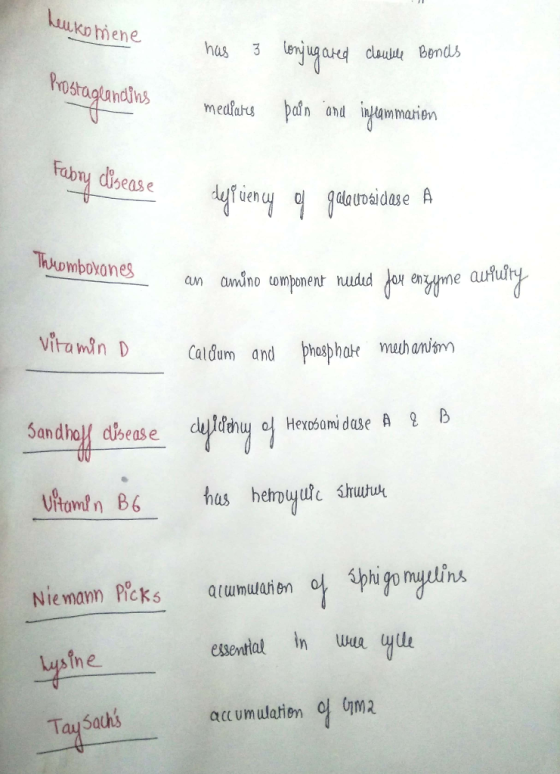 Leukotriene has 3 conjugated double Bonds
Prostaglandins mediates pain and inflammation
Fabry disease deficiency of galactosidase A
Thromboxones an amino component needed for enzyme activity
Vitamin D Calcium and phosphate mechanism
Sandhoff disease deficiency of Hexosamidase A & B
Vitamin B6 has hetrocyclic structur
Niemann Picks accumulation of Sphigomyelins
Lysine essential in urea cycle
Tay Sach's accumulation of GM2